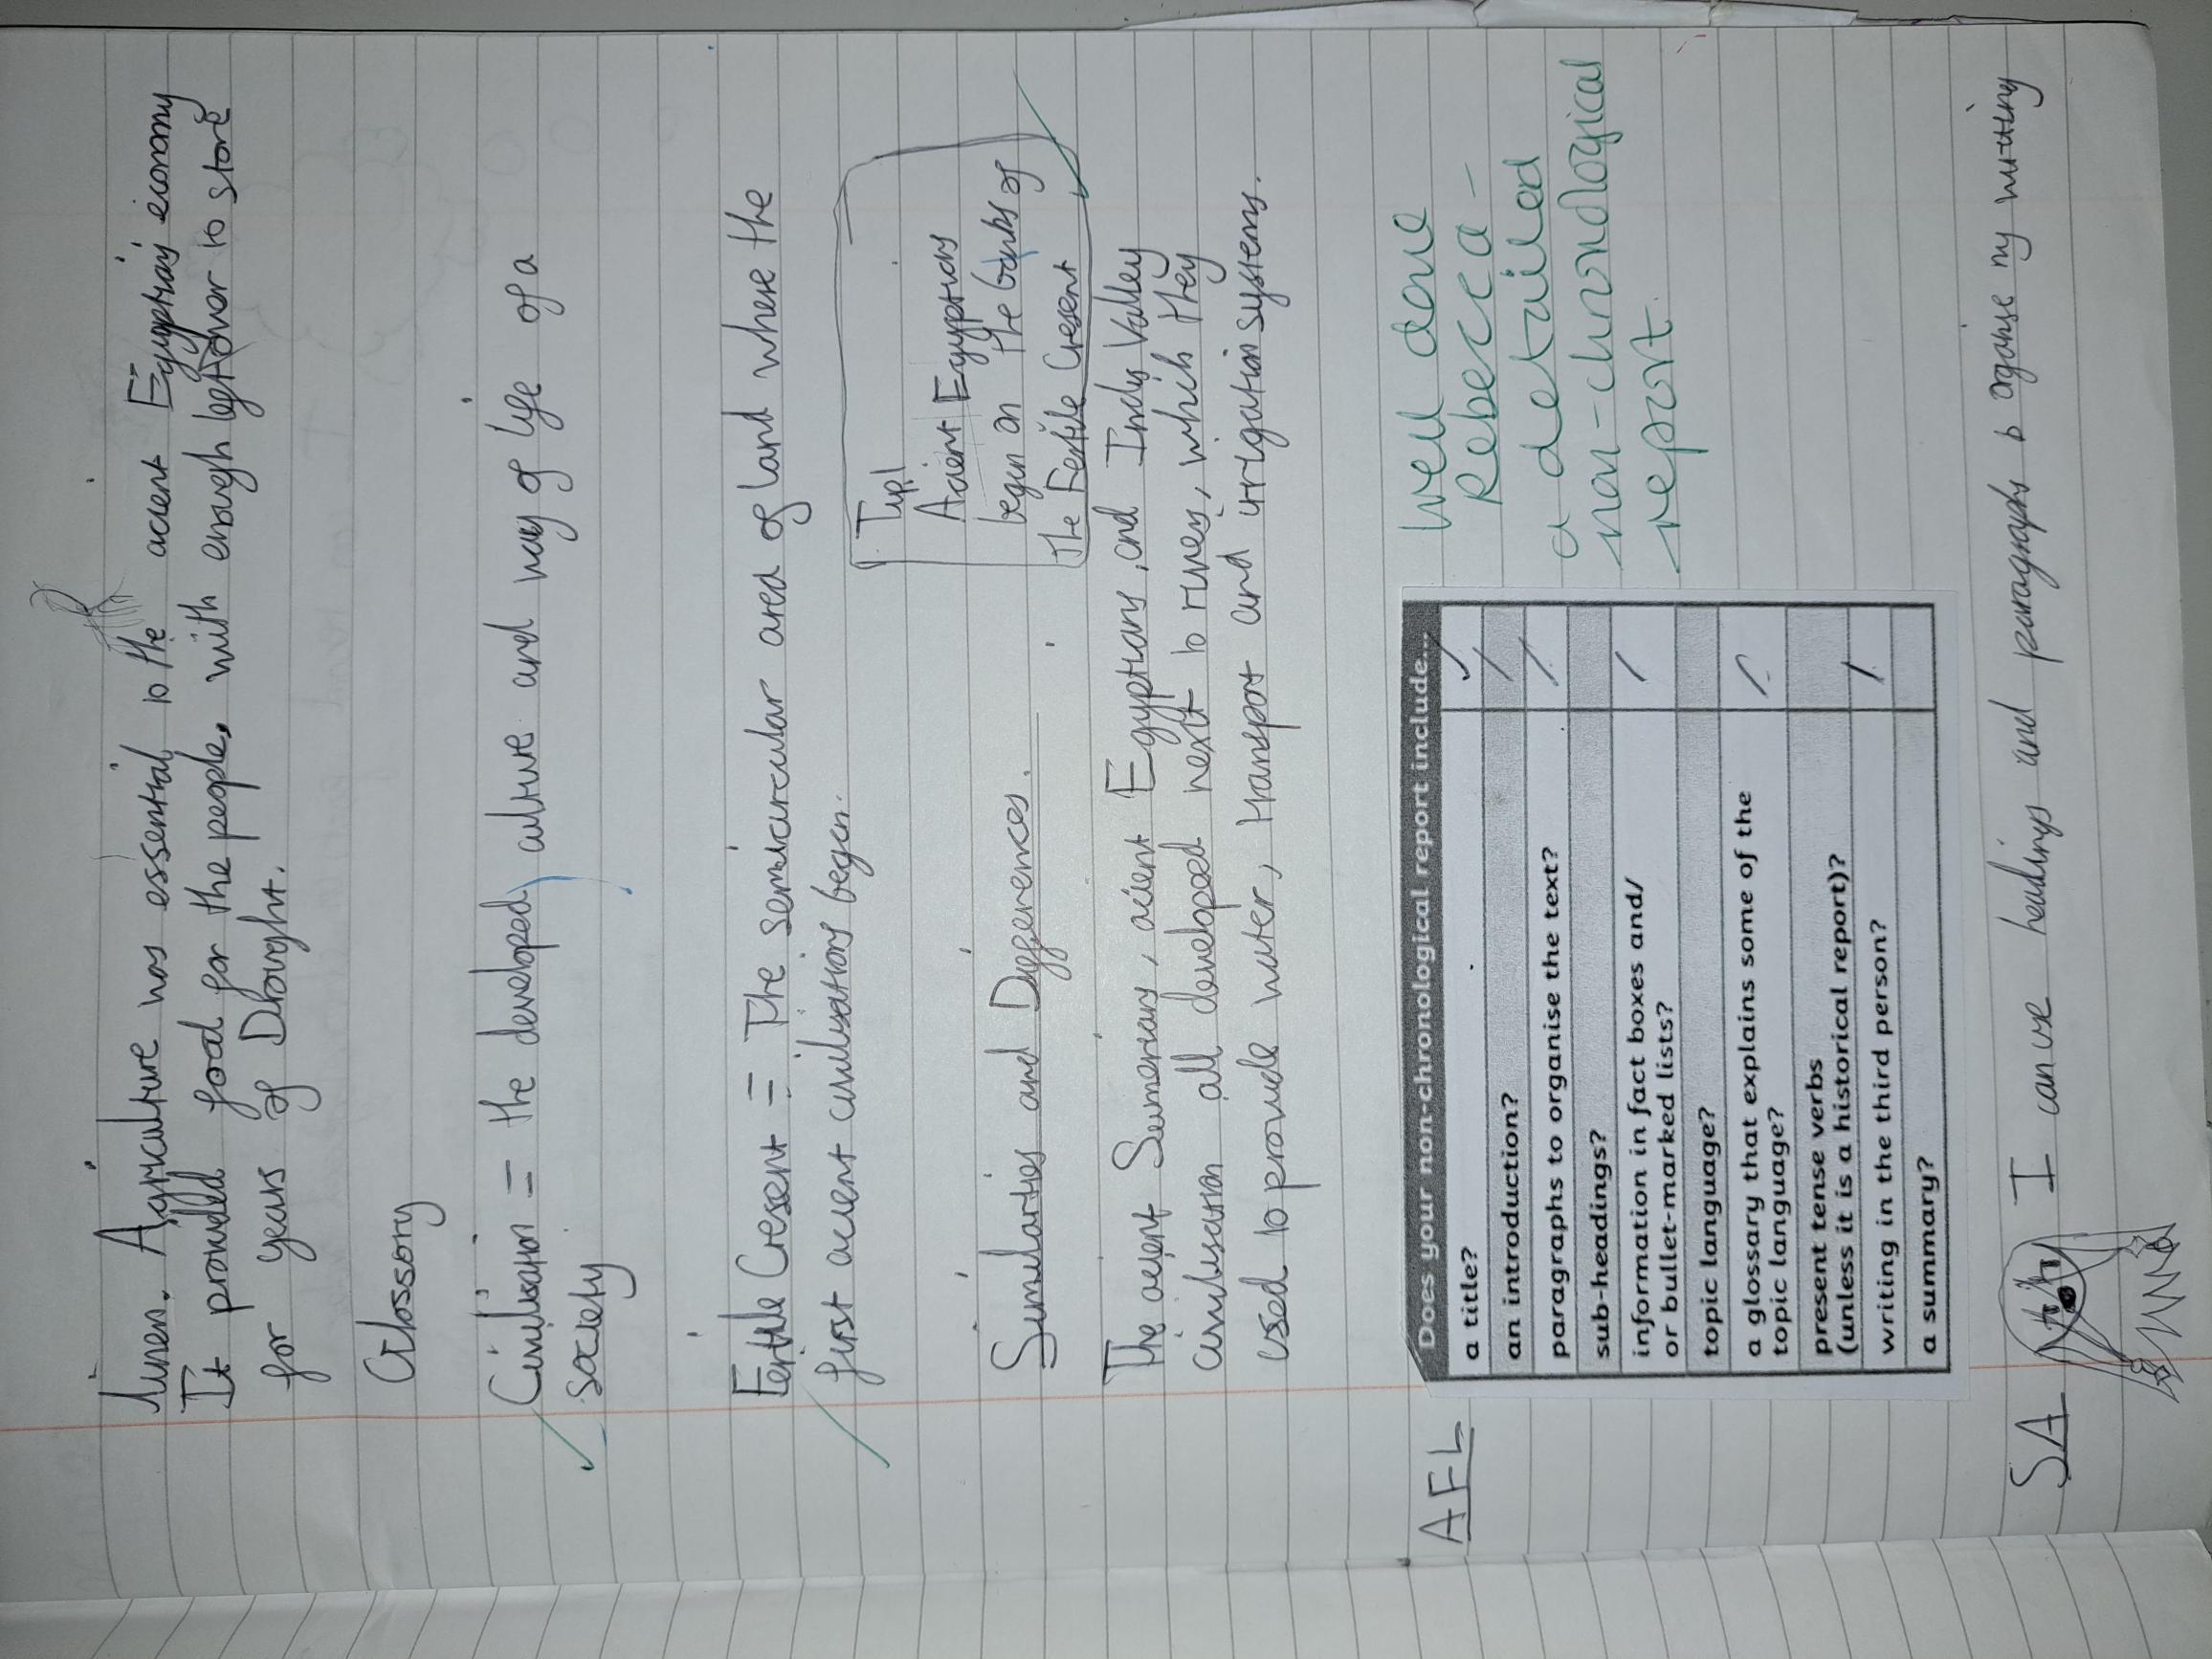 Agriculture was essential to the acient Egyptian's economy
It provided food for the people, with enough left over to store
for years of Drought.
Glossory
Civilisation = the developed, culture and way of life of a
society
Fertile Cresent = The semicircular area of land where the
first acient civilisations began.
Tip!
Acient Egyptians
began on the banks of
the Fertile Cresent
Similarities and Differences.
The acient Sumerians, acient Egyptians, and Indus Valley
civilisation all developed next to rivers, which they
used to provide water, transport and irrigation systems.
AFL
Does your non-chronological report include...
a title?
an introduction?
paragraphs to organise the text?
sub-headings?
information in fact boxes and/
or bullet-marked lists?
topic language?
a glossary that explains some of the
topic language?
present tense verbs
(unless it is a historical report)?
writing in the third person?
a summary?
Well done
Rebecca -
a detailed
non-chronological
report.
SA I can use headings and paragraphs to organise my writing